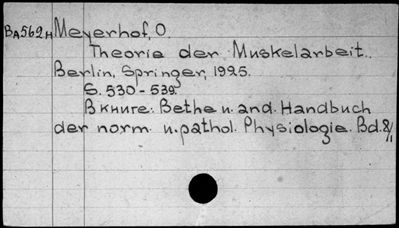 Ba562н Meyerhof, O.
Theorie der Muskelarbeit.
Berlin, Springer, 1925.
S. 530-539.
В книге: Bethe u. and. Handbuch
der norm. u. pathol. Physiologie. Bd. 8/1